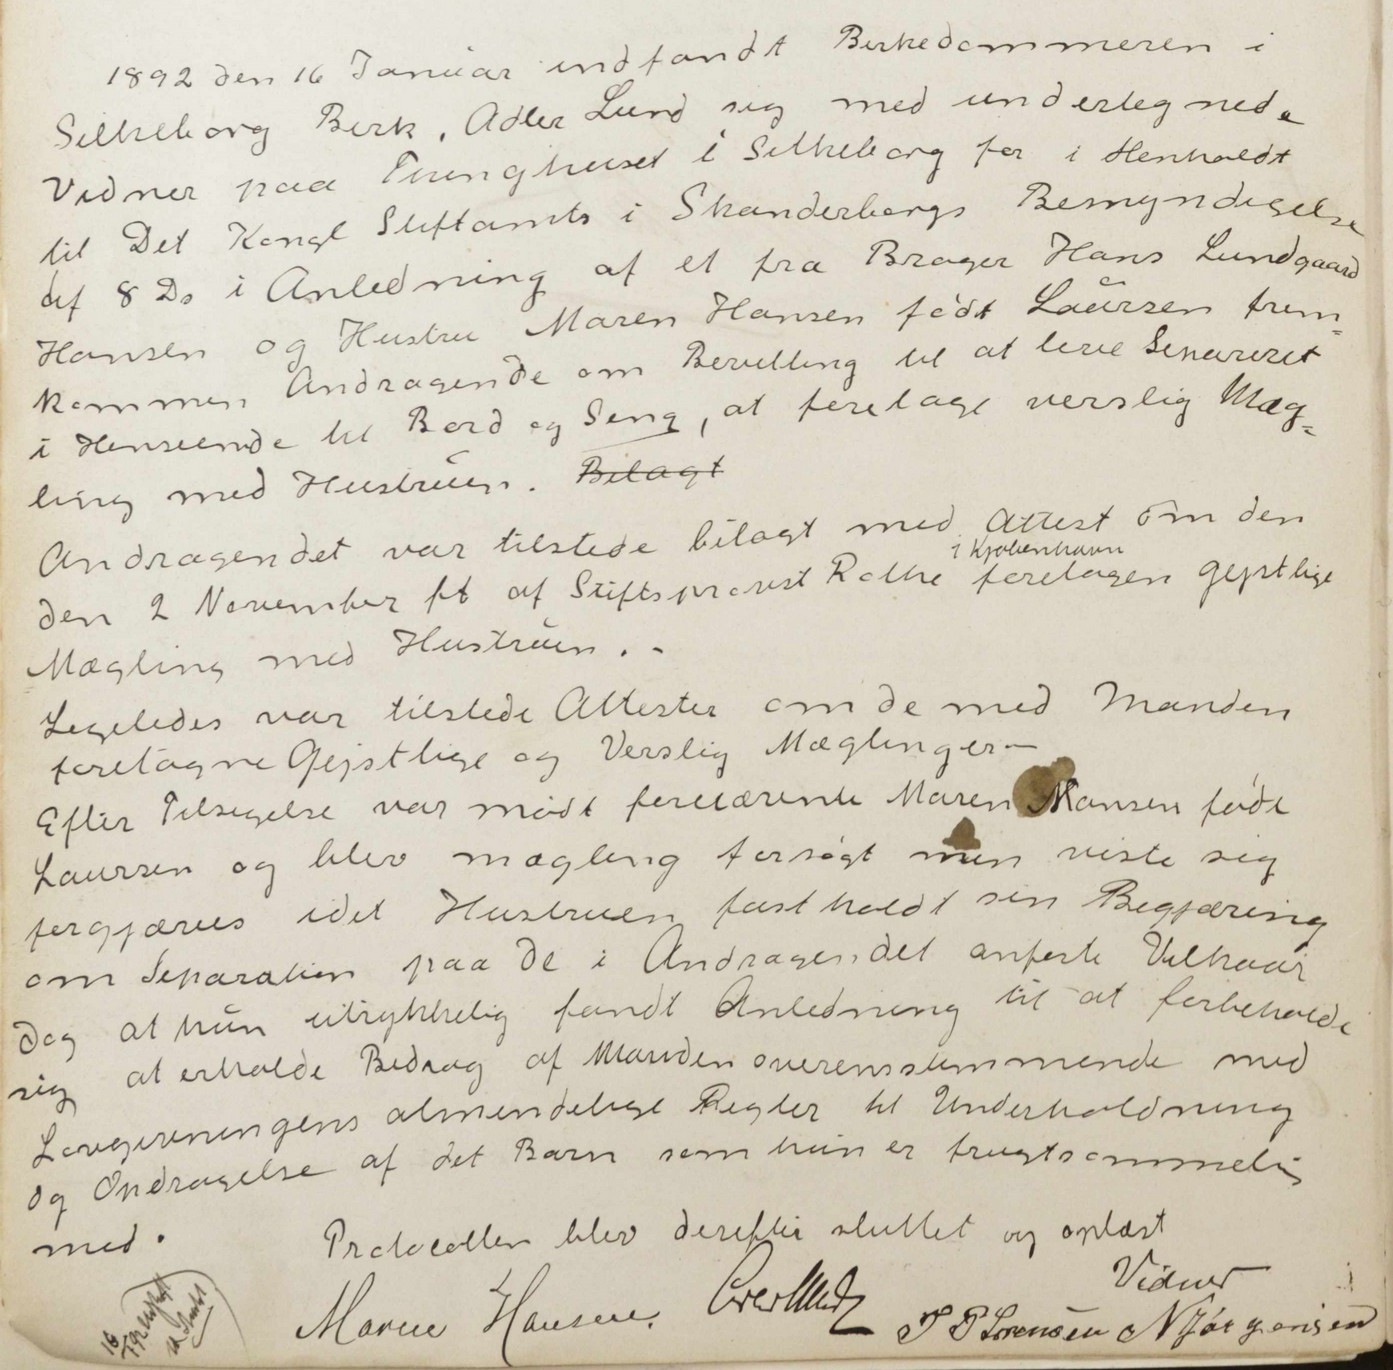 1892 den 16 Januar indfandt Birkedommeren i
Silkeborg Birk, Adler Lund sig med undertegnede
Vidner paa Thinghuset i Silkeborg for i Henholdt
til Det Kongl Stiftamts i Skanderborgs Bemyndigelse
af 8 Ds i Anledning af et fra Brager Hans Lundgaard
Hansen og Hustru Maren Hansen født Laursen frem=
kommen Andragende om Bevilling til at leve Separeret
i Henseende til Bord og Seng, at foretage verslig Mæg=
ling med Hustruen. Bilagt
Andragendet var tilstede bilagt med Attest om den
den 2 November ft af Stiftsprovst Rothe i Kjøbenhavn foretagen gejstlige
Mægling med Hustruen. -
Ligeledes var tilstede Attester om de med Manden
foretagne Gejstlige og Verslig Mæglinger —
Efter Tilsigelse var mødt foreværente Maren Hansen født
Laursen og blev mægling forsøgt men viste sig
forgjæves idet Hustruen fastholdt sin Begjæring
om Separation paa de i Andragendet anførte Vilkaar
dog at hun utrykkelig fandt Anledning til at forbeholde
sig at erholde Bidrag af Manden overensstemmende med
Lovgivningens almindelige Regler til Underholdning
og Opdragelse af det Barn som hun er frugtsommelig
med.
Protocollen blev derefter sluttet og oplæst
Maren Hansen.
Vidner
J P Sørensen N Jørgensen